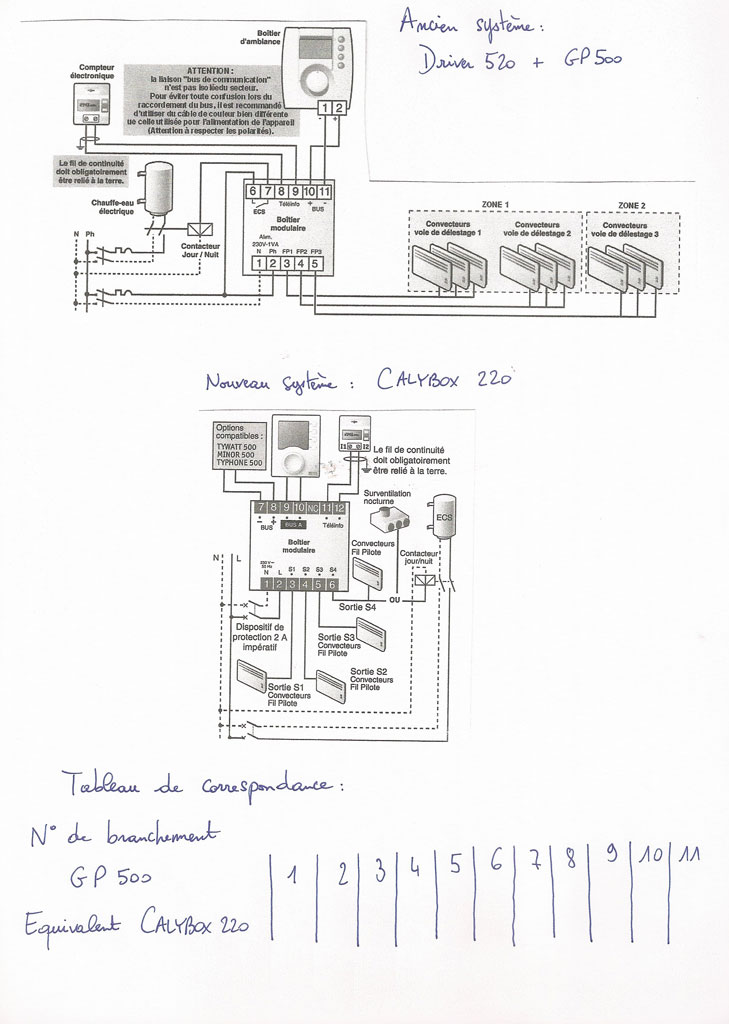 Ancien système :
Driver 520 + GP 500
Boîtier
d'ambiance
Compteur
électronique
ATTENTION :
la liaison "bus de communication"
n'est pas isoléedu secteur.
Pour éviter toute confusion lors du
raccordement du bus, il est recommandé
d'utiliser du câble de couleur bien différente
ue celle utilisée pour l'alimentation de l'appareil
(Attention à respecter les polarités).
1 2
- +
Le fil de continuité
doit obligatoirement
être relié à la terre.
Chauffe-eau
électrique
N Ph
Contacteur
Jour / Nuit
6 7 8 9 10 11
L
ECS
Téléinfo
+ -
BUS
Boîtier
modulaire
Alim.
230V-1VA
N Ph FP1 FP2 FP3
1 2 3 4 5
ZONE 1
ZONE 2
Convecteurs
voie de délestage 1
Convecteurs
voie de délestage 2
Convecteurs
voie de délestage 3
Nouveau système : CALYBOX 220
Options
compatibles :
TYWATT 500
MINOR 500
TYPHONE 500
I1 I2
Le fil de continuité
doit obligatoirement
être relié à la terre.
7 8 9 10 NC 11 12
- +
BUS
BUS A
Téléinfo
Boîtier
modulaire
230V~
50 Hz
N L S1 S2 S3 S4
1 2 3 4 5 6
Surventilation
nocturne
ECS
Convecteurs
Fil Pilote
Contacteur
jour/nuit
N L
OU
Sortie S4
Dispositif de
protection 2 A
impératif
Sortie S3
Convecteurs
Fil Pilote
Sortie S1
Convecteurs
Fil Pilote
Sortie S2
Convecteurs
Fil Pilote
Tableau de correspondance :
N° de branchement
GP 500
1 2 3 4 5 6 7 8 9 10 11
Equivalent CALYBOX 220